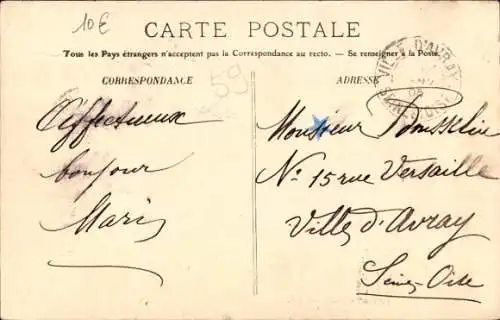 10€
CARTE POSTALE
Tous les Pays étrangers n'acceptent pas la Correspondance au recto. — Se renseigner à la Poste.
CORRESPONDANCE
59
ADRESSE
VILLE D'AVRAY
SEINE-ET-OISE
Affectueux
bonjour
Marie
Monsieur Rousselin
N° 15 rue Versaille
Ville d'Avray
Seine-Oise